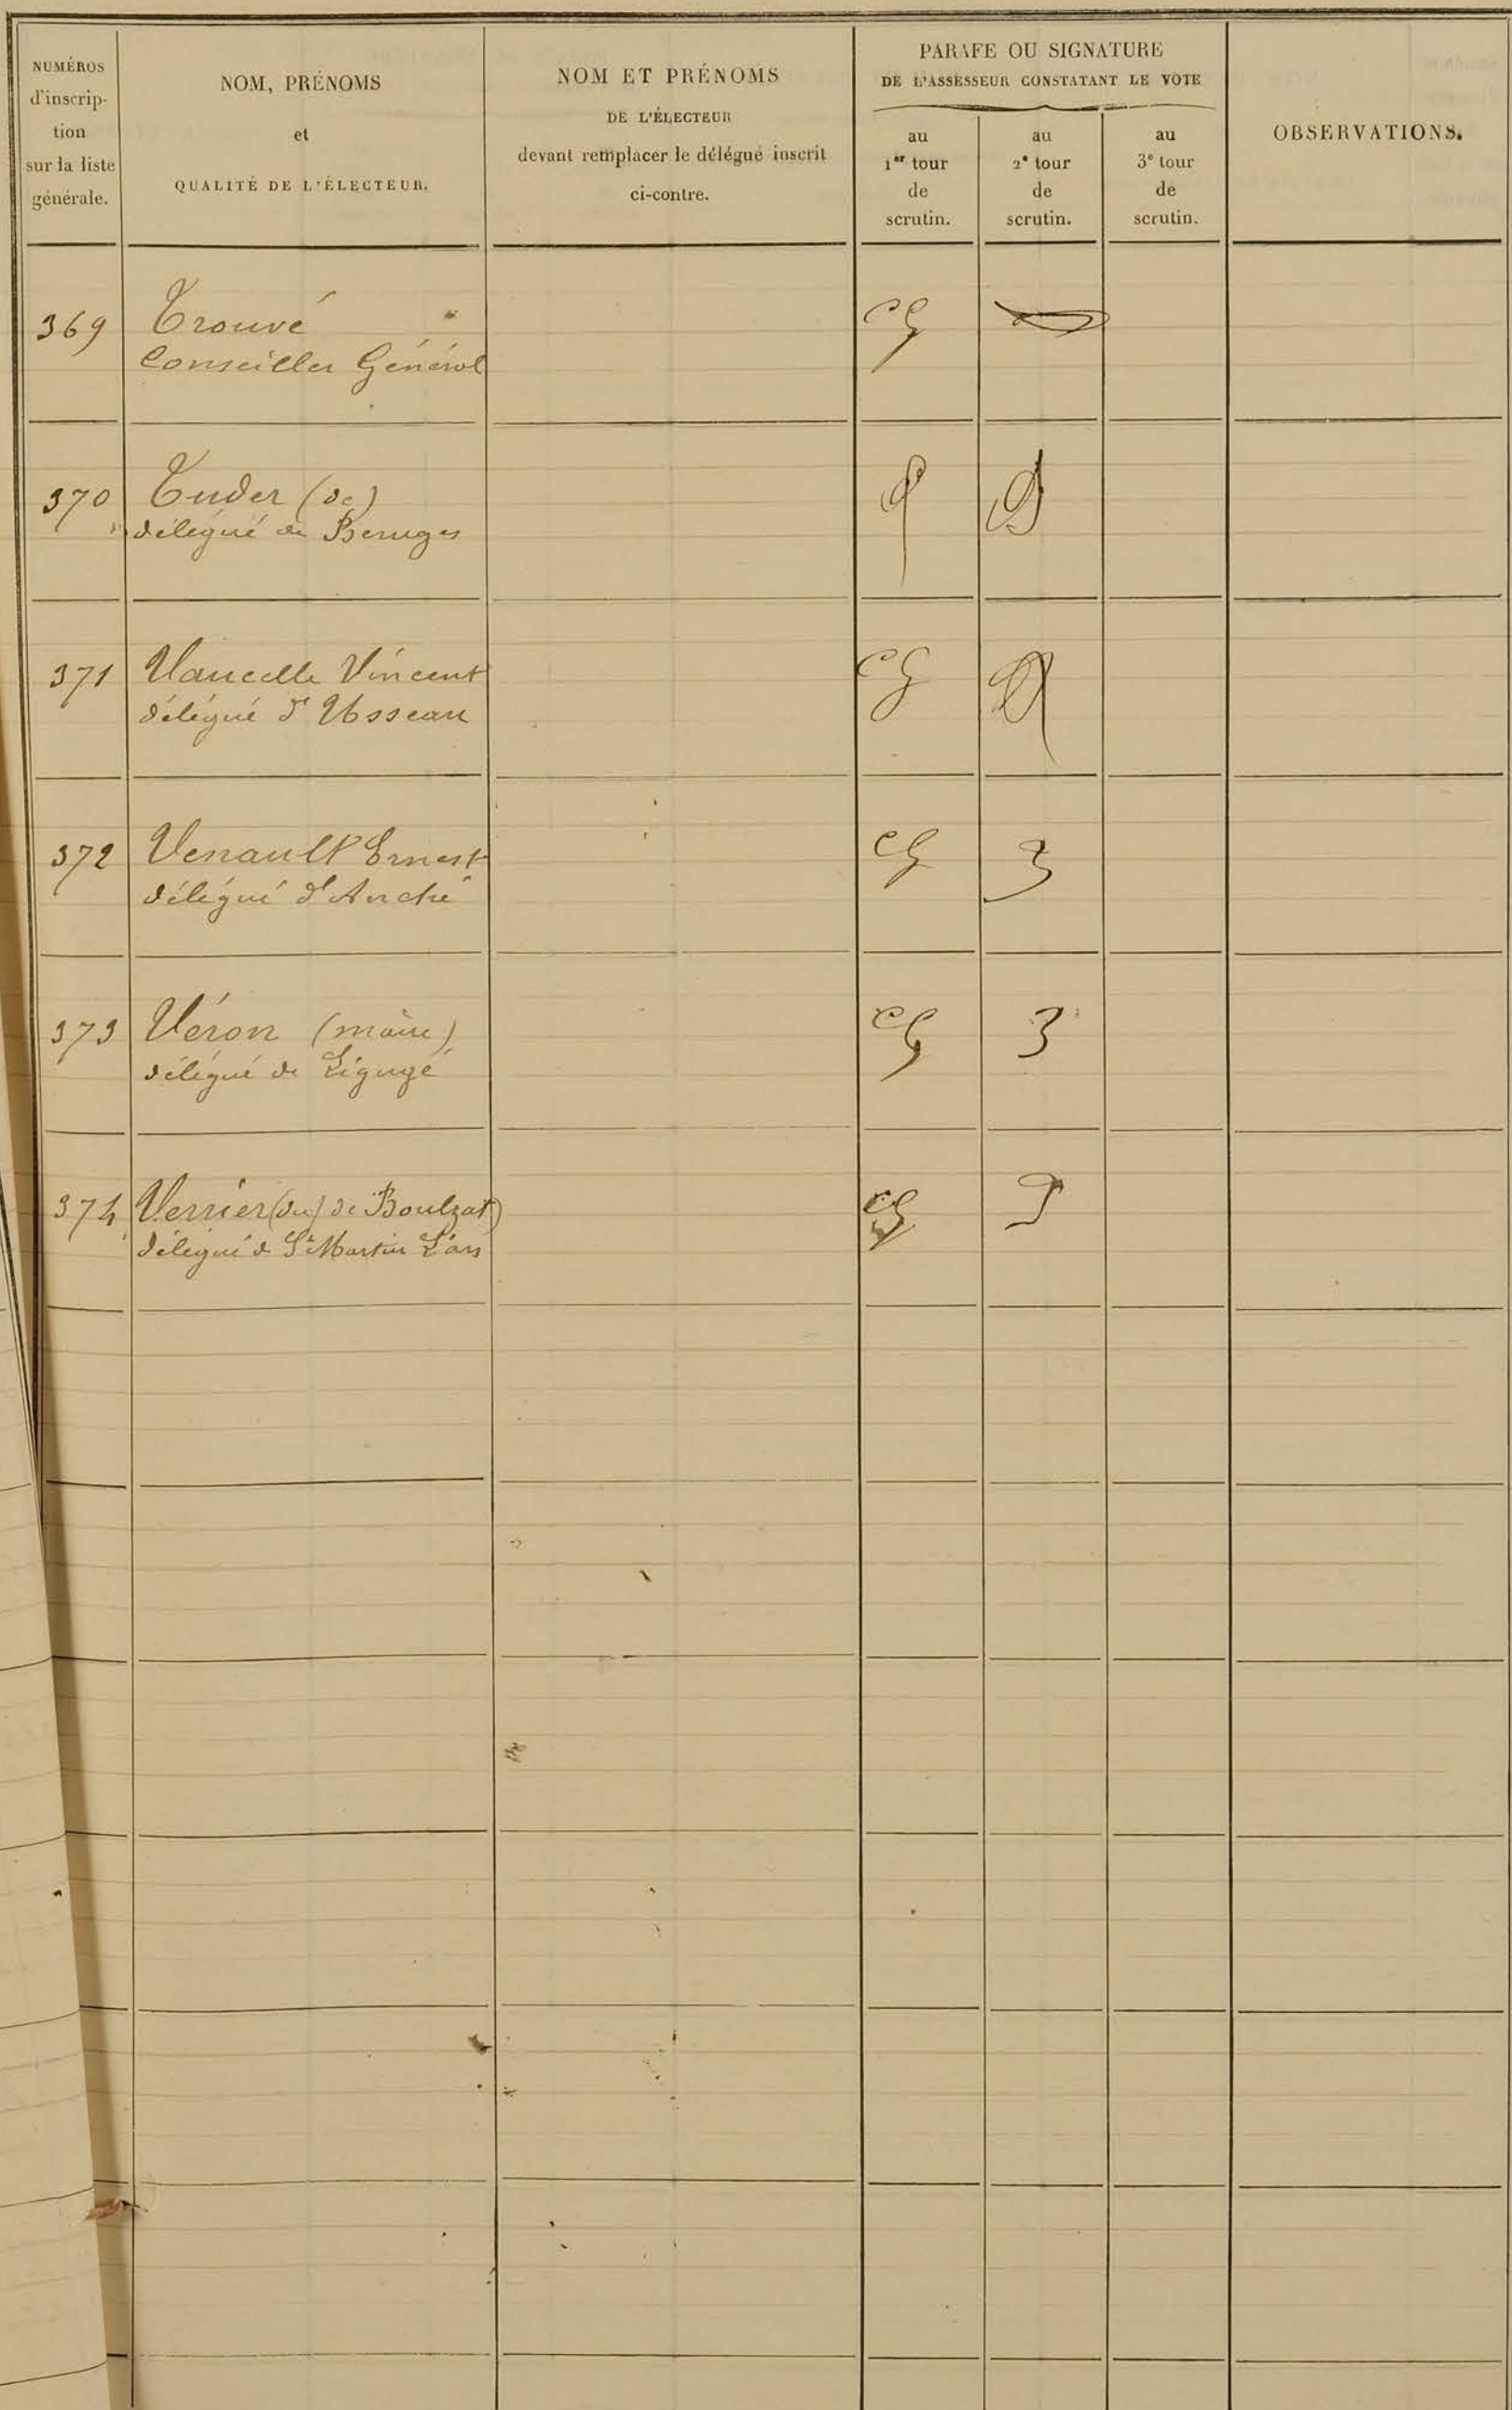 NUMÉROS
d'inscrip-
tion
sur la liste
générale.
NOM, PRÉNOMS
et
QUALITÉ DE L'ÉLECTEUR.
NOM ET PRÉNOMS
DE L'ÉLECTEUR
devant remplacer le délégué inscrit
ci-contre.
PARAFE OU SIGNATURE
DE L'ASSESSEUR CONSTATANT LE VOTE
au
1er tour
de
scrutin.
au
2e tour
de
scrutin.
au
3e tour
de
scrutin.
OBSERVATIONS.
369 Trouvé
Conseiller Général
370 Tuder (de)
délégué de Beruges
371 Vaucelle Vincent
délégué d'Usseau
372 Venault Ernest
délégué d'Anché
373 Véron (maire)
délégué de Ligugé
374 Verrier (du) de Boulzat
délégué de St Martin L'ars